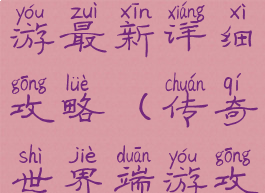 yóu zuì xīn xiáng xì
游最新详细
gōng lüè chuán qí
攻略(传奇
shì jiè duān yóu gōng
世界端游攻